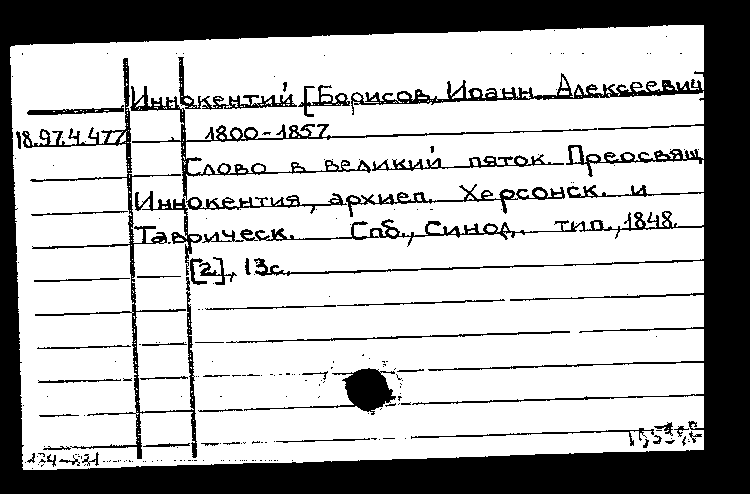 Иннокентий [Борисов, Иоанн Алексеевич]
18.97.4.477 1800-1857.
Слово в великий пяток. Преосвящ
Иннокентия, архиеп. Херсонск. и
Таврическ. Спб., Синод. тип., 1848.
[2], 13с.